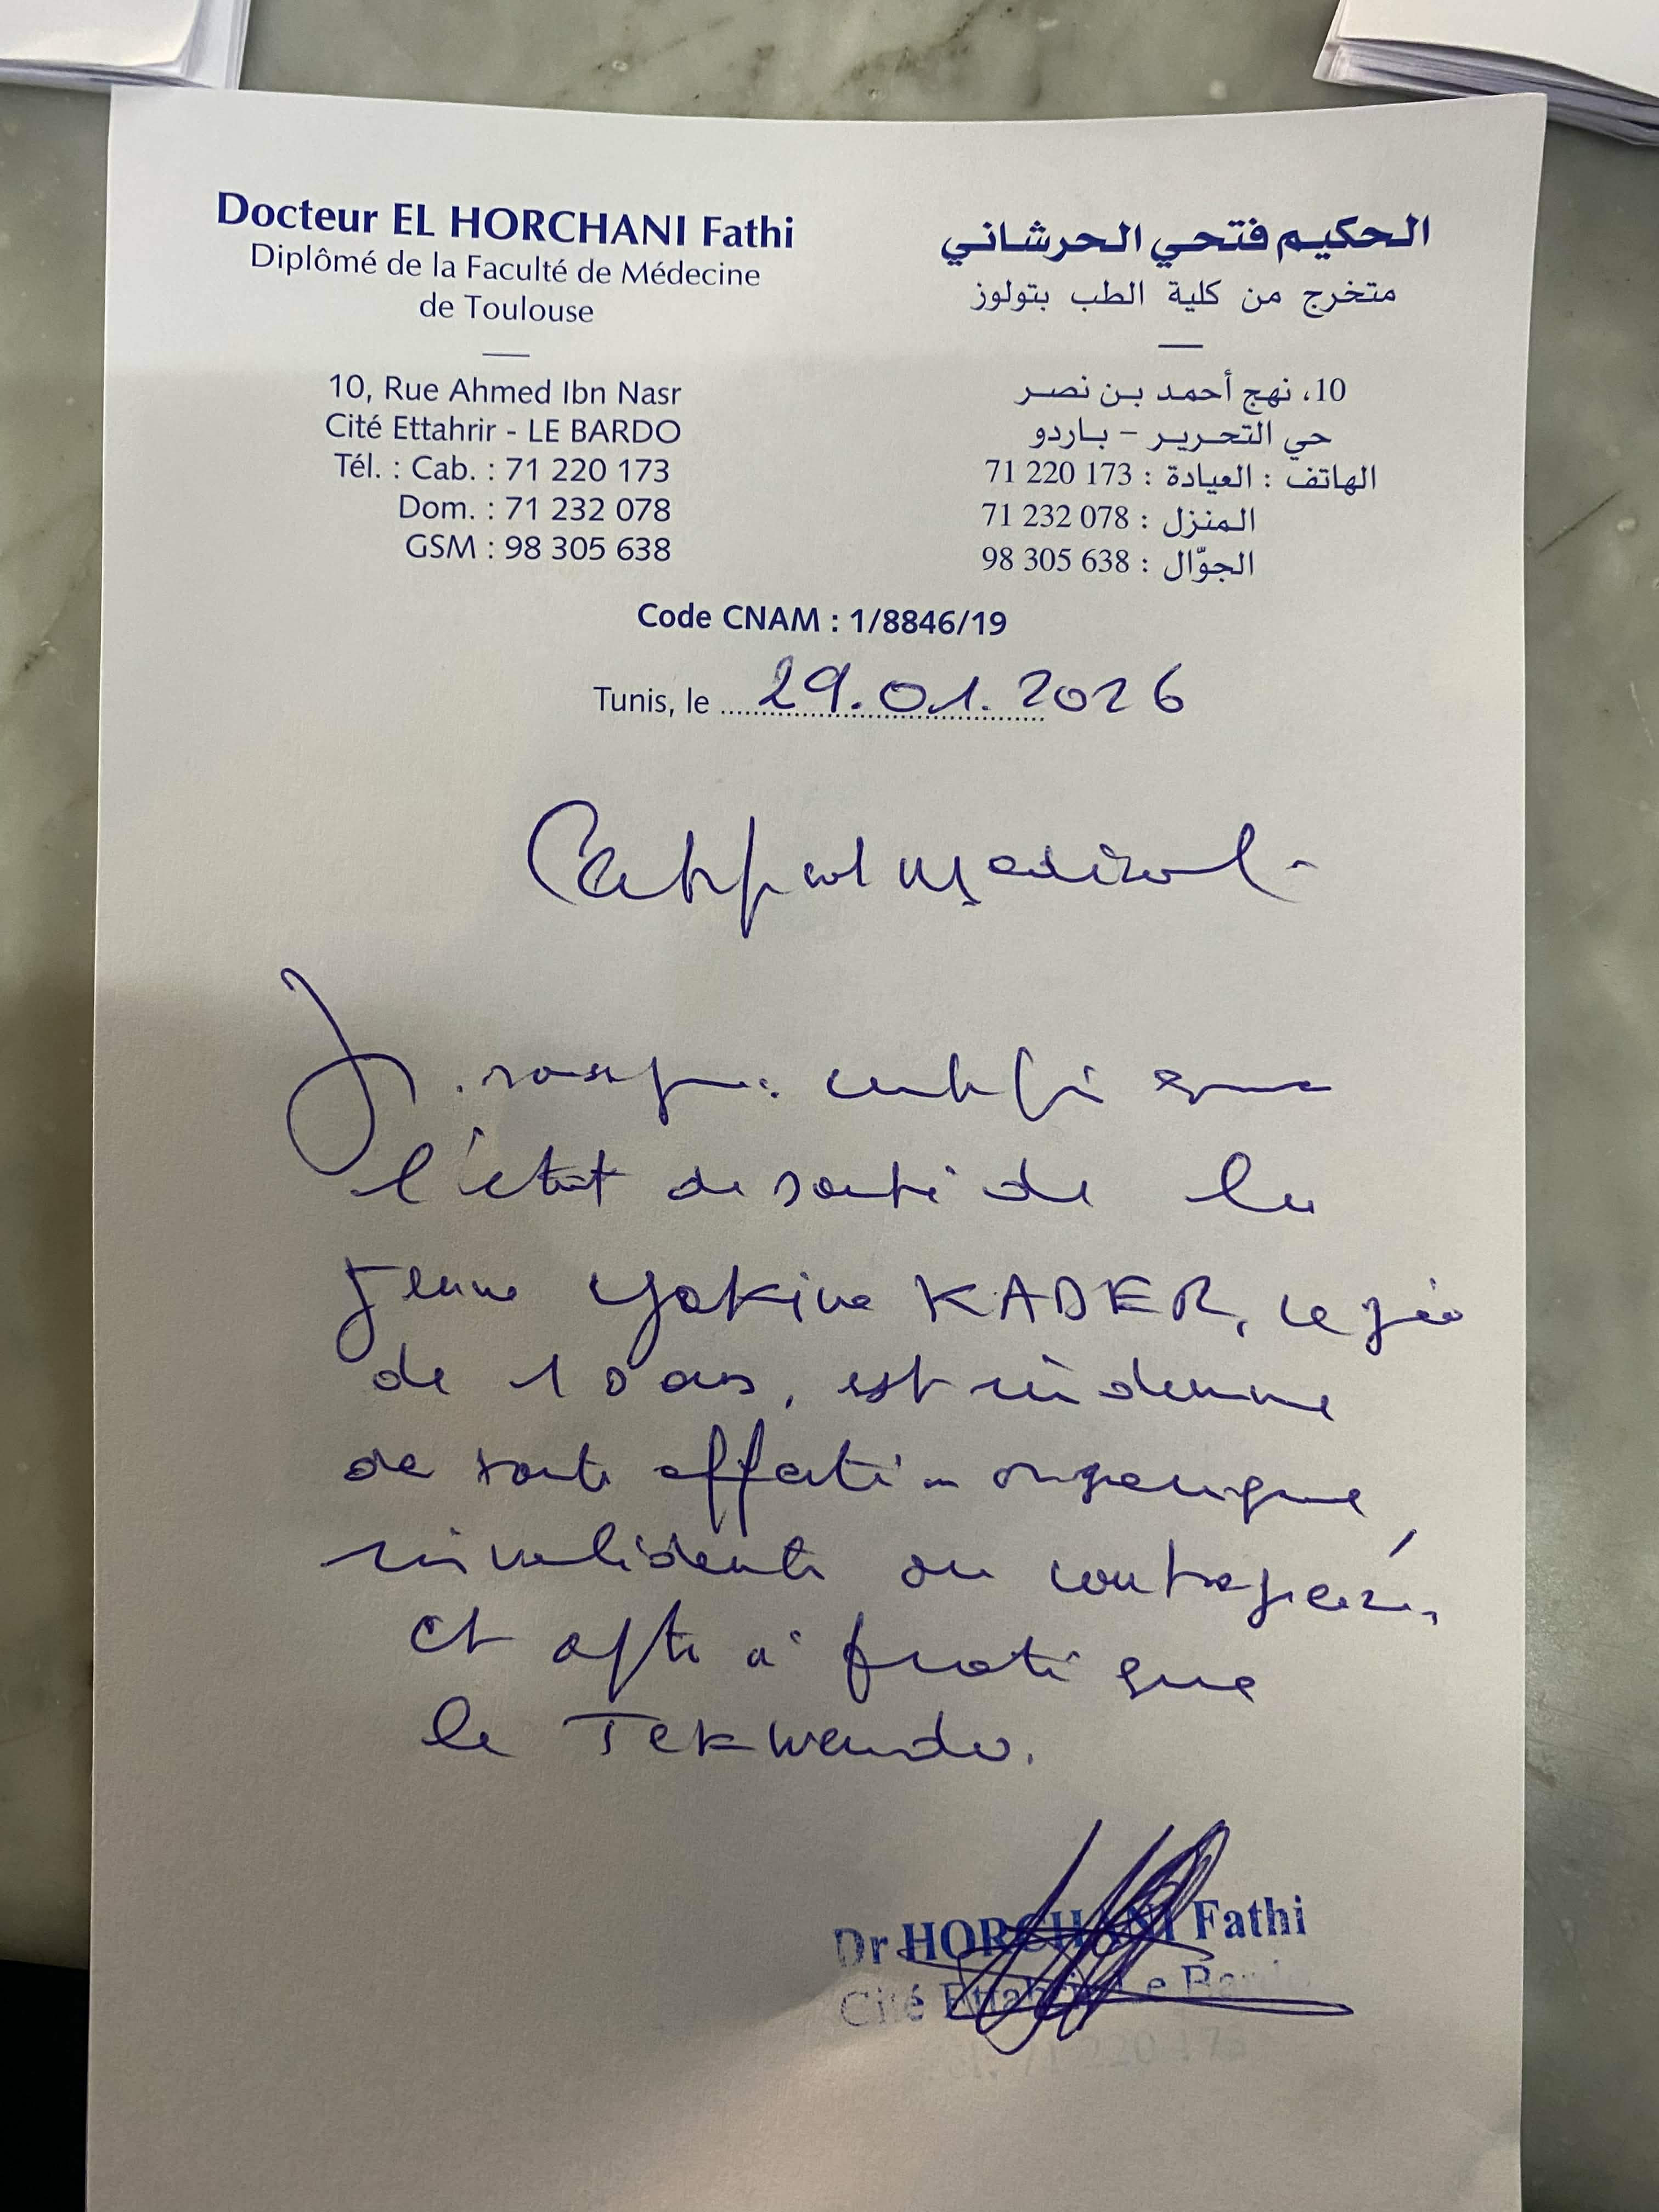 Docteur EL HORCHANI Fathi
Diplômé de la Faculté de Médecine
de Toulouse
10, Rue Ahmed Ibn Nasr
Cité Ettahrir - LE BARDO
Tél. : Cab. : 71 220 173
Dom. : 71 232 078
GSM : 98 305 638
الحكيم فتحي الحرشاني
متخرج من كلية الطب بتولوز
10، نهج أحمد بن نصر
حي التحرير - باردو
الهاتف : العيادة : 173 220 71
المنزل : 078 232 71
الجوّال : 638 305 98
Code CNAM : 1/8846/19
Tunis, le 29.01.2026
Certificat Médical
Je soussigné certifie que
l'état de santé de la
jeune KADER,
de 10 ans, est indemne
de toute affection organique
invalidante ou contagieuse
et apte à pratiquer
le Tekwendo.
Dr HORCHANI Fathi
Cité Ettahrir Le Bardo
71 220 173